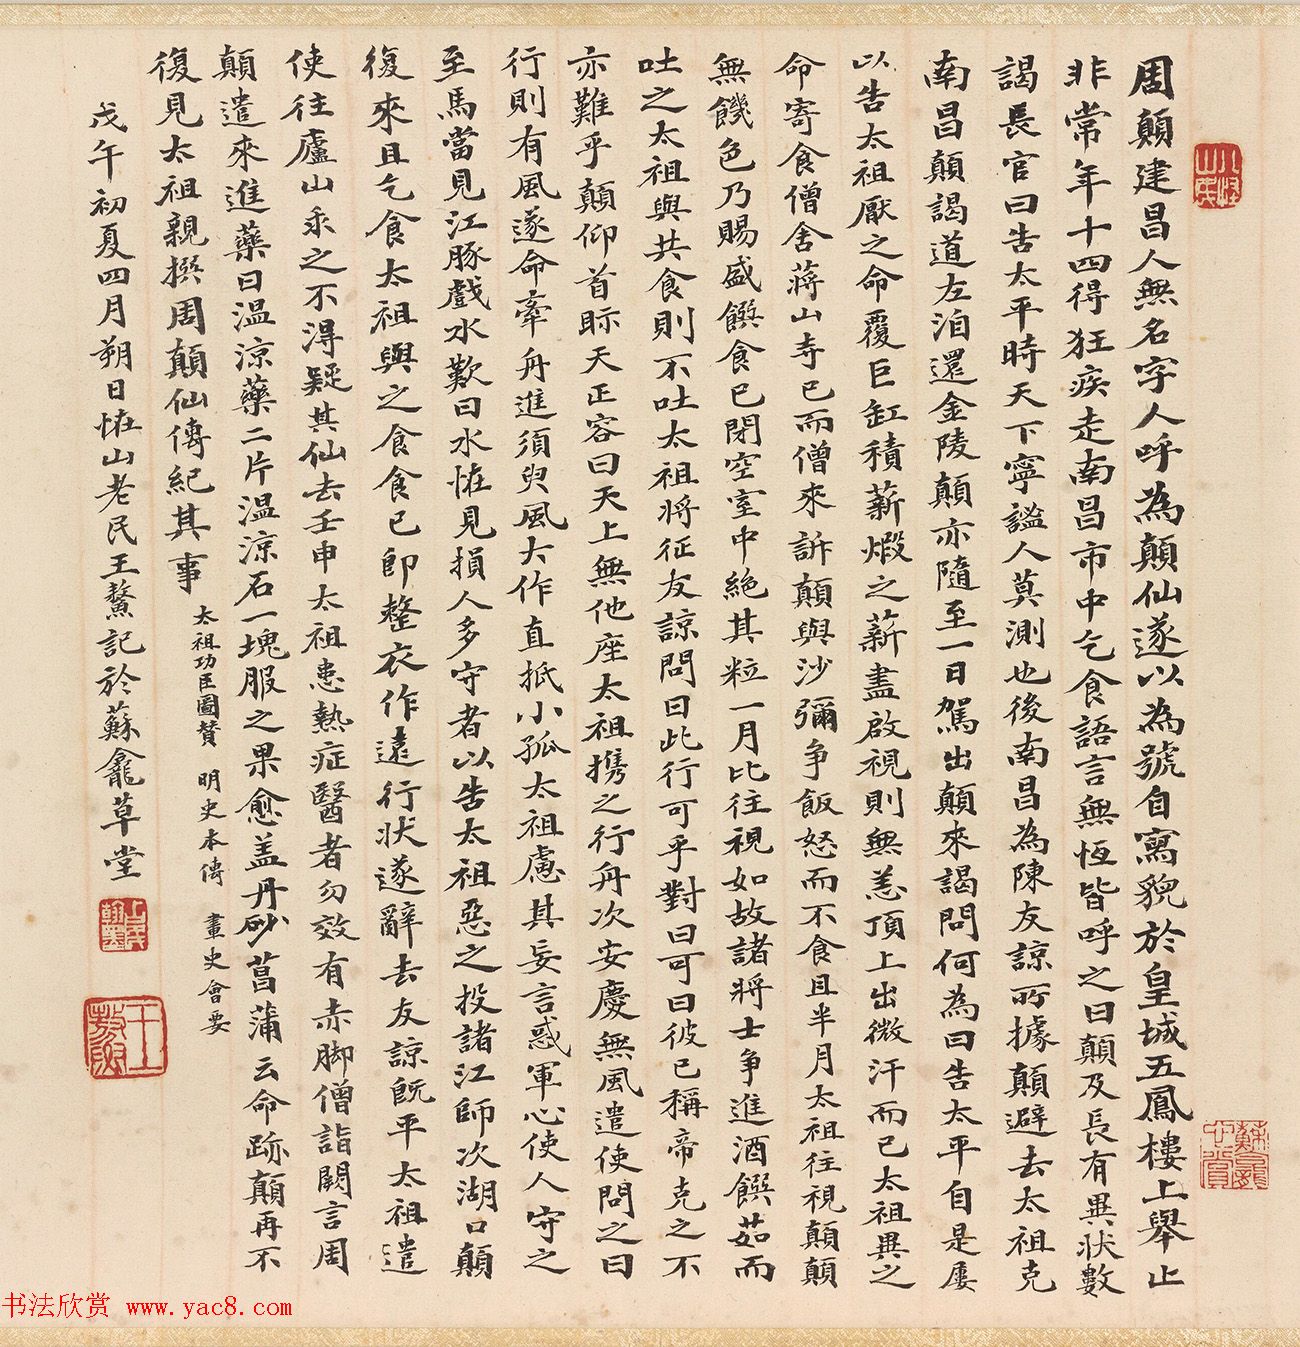 周顛建昌人無名字人呼為顛仙遂以為號自寫貌於皇城五鳳樓上舉止
非常年十四得狂疾走南昌市中乞食語言無恆皆呼之曰顛及長有異狀數
謁長官曰告太平時天下寧謐人莫測也後南昌為陳友諒所據顛避去太祖克
南昌顛謁道左洎還金陵顛亦隨至一日駕出顛來謁問何為曰告太平自是屢
以告太祖厭之命覆巨缸積薪煅之薪盡啟視則無恙頂上出微汗而已太祖異之
命寄食僧舍蔣山寺已而僧來訴顛與沙彌爭飯怒而不食且半月太祖往視顛顛
無饑色乃賜盛饌食已閉空室中絕其粒一月比往視如故諸將士爭進酒饌茹而
吐之太祖與共食則不吐太祖將征友諒問曰此行可乎對曰可曰彼已稱帝克之不
亦難乎顛仰首眎天正容曰天上無他座太祖携之行舟次安慶無風遣使問之曰
行則有風遂命牽舟進須臾風大作直抵小孤太祖慮其妄言惑軍心使人守之
至馬當見江豚戲水歎曰水恠見損人多守者以告太祖惡之投諸江師次湖口顛
復來且乞食太祖與之食食已即整衣作遠行狀遂辭去友諒既平太祖遣
使往廬山求之不得疑其仙去壬申太祖患熱症醫者勿效有赤脚僧詣闕言周
顛遣來進藥曰溫涼藥二片溫涼石一塊服之果愈盖丹砂菖蒲云命跡顛再不
復見太祖親撰周顛仙傳紀其事 太祖功臣圖贊 明史本傳 畫史會要
戊午初夏四月朔日恠山老民王鰲記於蘇龕草堂
蘇龕心賞
书法欣赏 www.yac8.com